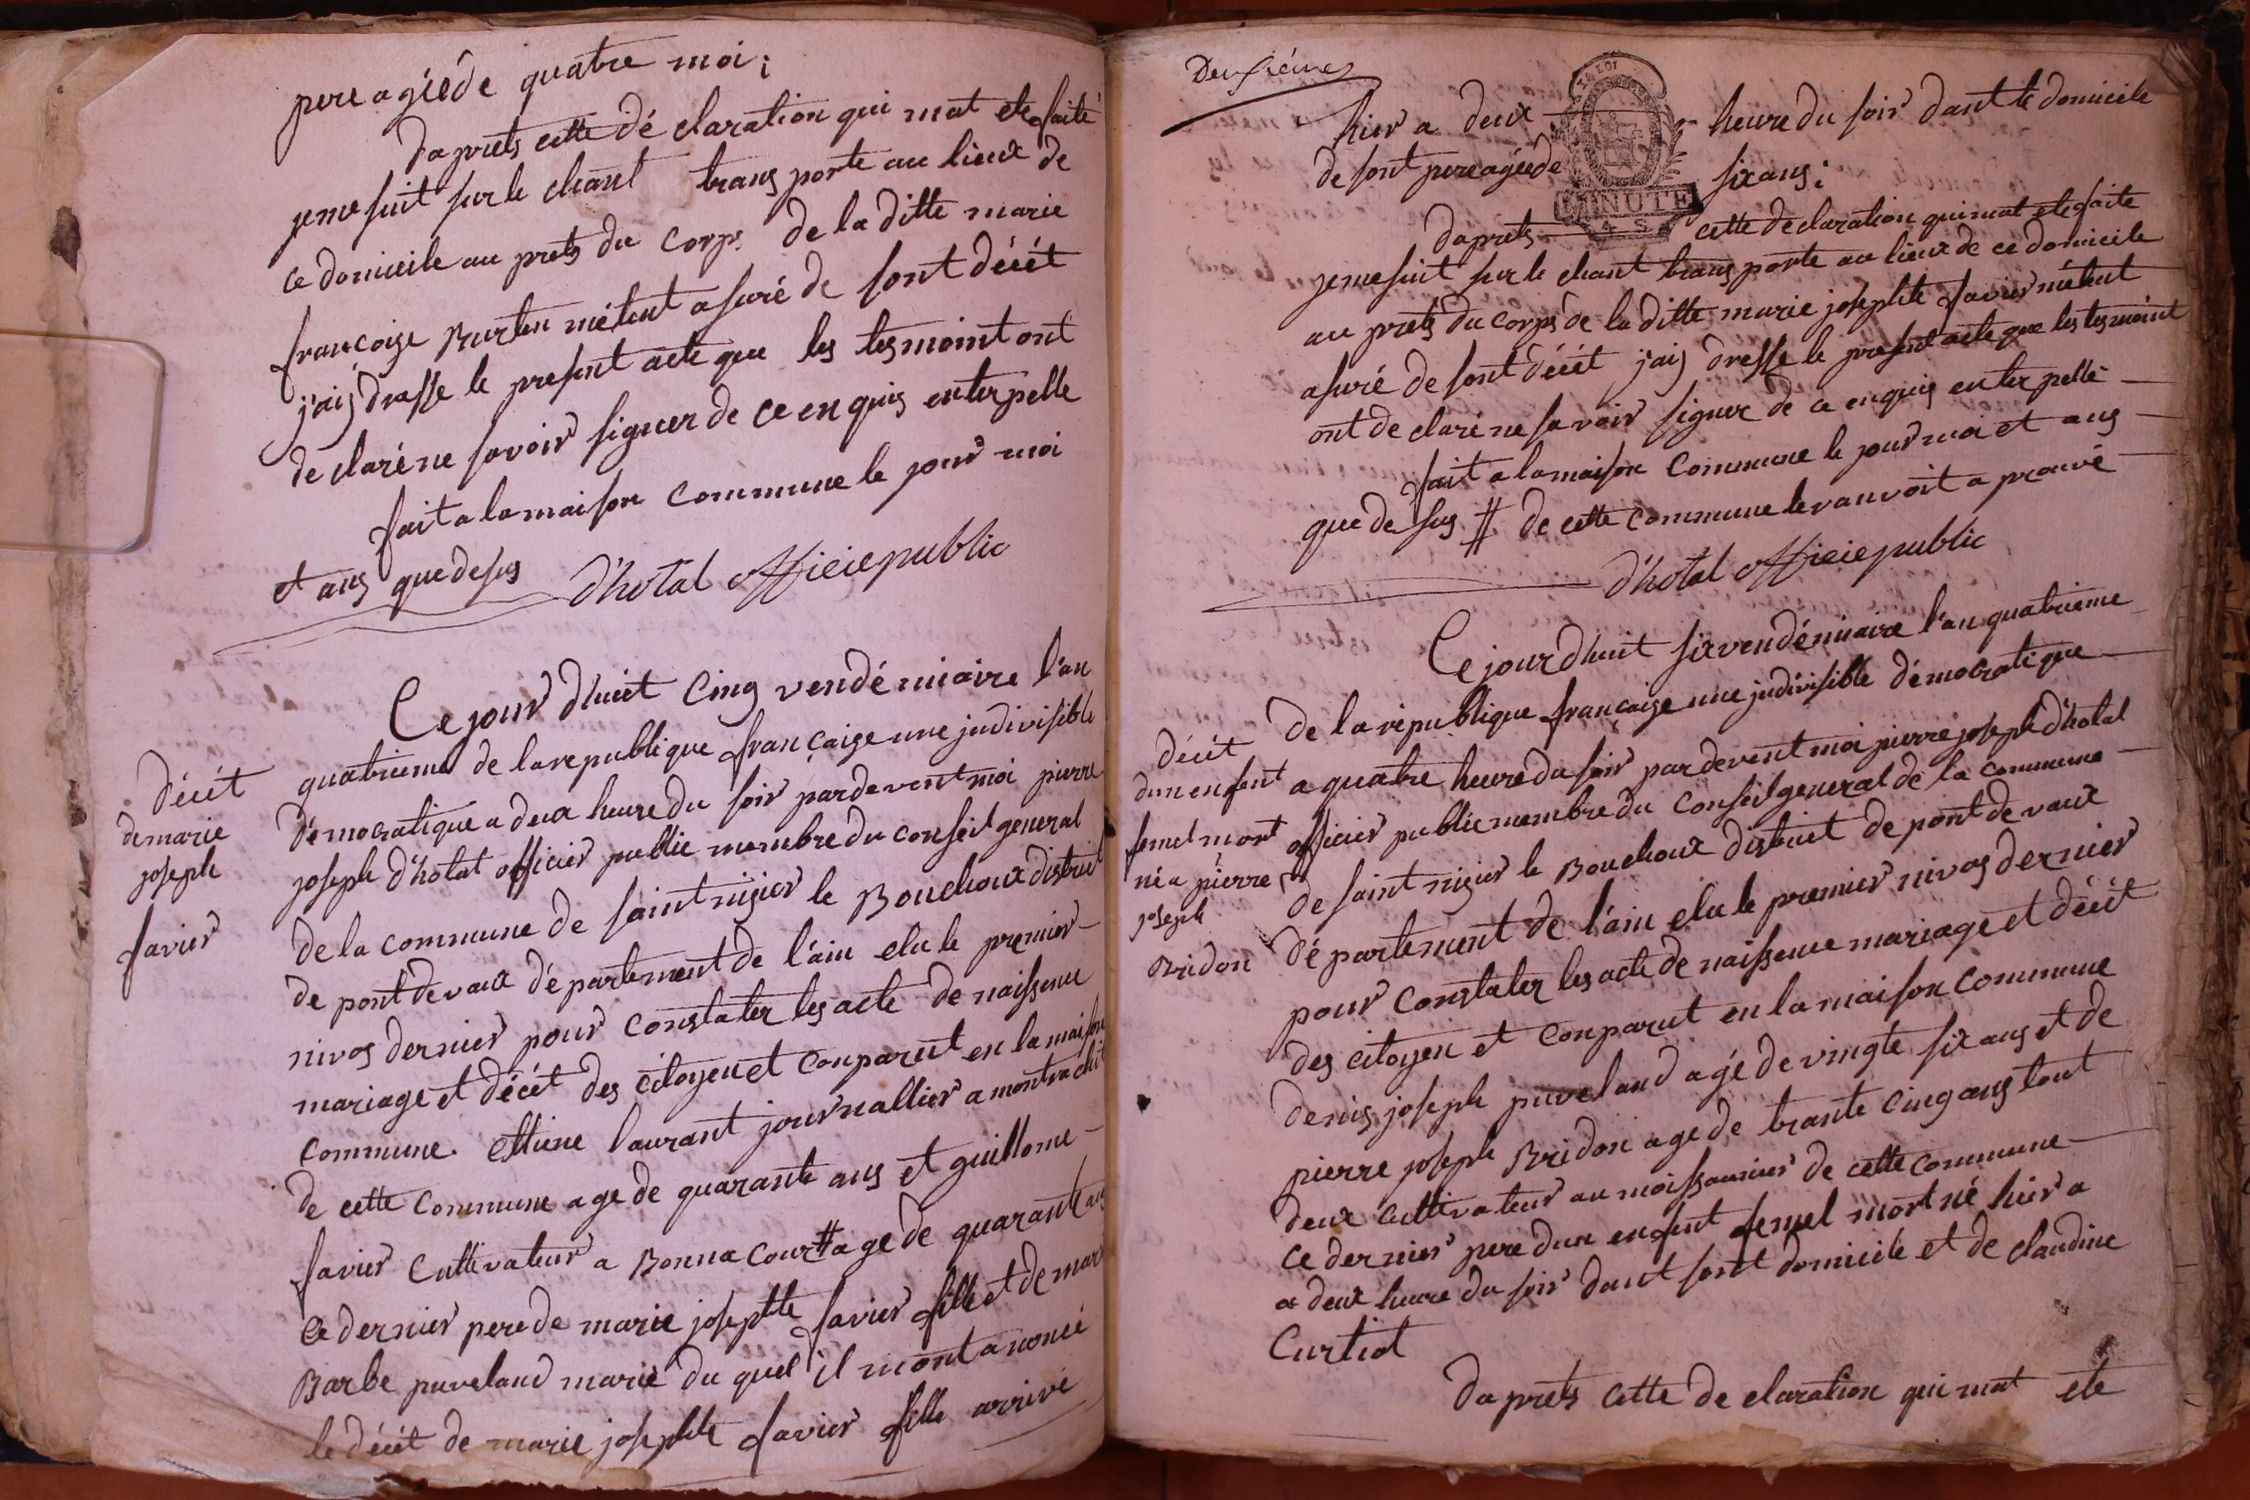 pere agée de quatre moi ;
daprets cette dé claration qui mat ete faite
je me suit sur le chant trans porte au lieux de
ce domicile au prets du corps de la ditte marie
francoise Burten métent asuré de sont décét
j'aij dresse le present acte que les tesmoint ont
de claré ne savoir signer de ce en quis enterpelle
fait a la maison commune le jour moi
et ans que desus d'hotal officie public
Ce jour d'huit cinq vendémiaire l'an
quatrieme de la republique française une jndivisible
démocratique a deux heure du soir pardevent moi pierre
joseph d'hotal officier public membre du conseil general
de la commune de saint nisier le Bouchoux district
de pont de vaux département de l'ain elu le premier
nivos dernier pour constater les acte de naissence
mariage et décét des citoyen et conparut en la maison
commune. ettiene laurant journallier a montrachit
de cette commune age de quarante ans et guillome
favier cultivateur a Bonnacour # age de quarante ans
ce dernier pere de marie josephte favier fille et de mari
Barbe puveland marié du quel il mont anoncé
le décét de marie josephte favier fille arrivé
décét
de marie
joseph
favier
Deuxiéme
hier a deux heure du soir dant le domicile
de sont pere agée de six ans ;
MINUTE
daprets cette declaration qui mat ete faite
je me suit sur le chant trans porte au lieux de ce domicile
au prets du corps de la ditte marie josephte favier métent
asuré de sont décét j'aij dresse le present acte que les tesmoint
ont de claré ne savoir signer de ce enquis enterpellé
fait a la maison commune le jour moi et ans
que de sus # de cette commune le ranvoit a prouvé
d'hotal officie public
Ce jour d'huit six vendémiaire l'an quatrieme
de la république française une jndivisible démocratique
a quatre heure du soir par devent moi pierre joseph d'hotal
officier public membre du conseil general de la commune
de saint nisier le Bouchoux district de pont de vaux
département de l'ain elu le premier nivos dernier
pour constater les acte de naissence mariage et décét
des citoyen et conparut en la maison commune
denis joseph puveland agé de vingte six ans et de
pierre joseph Bridon age de trante cinq ans tout
deux cultivateur au moissonnier de cette commune
ce dernier pere dun enfent femel mort né hier a
a deux heure du soir dant sont domicile et de claudine
Curtiot
da prets cette de claration qui mat ete
décét
dun enfent
femel mort
né a pierre
joseph
Bridon